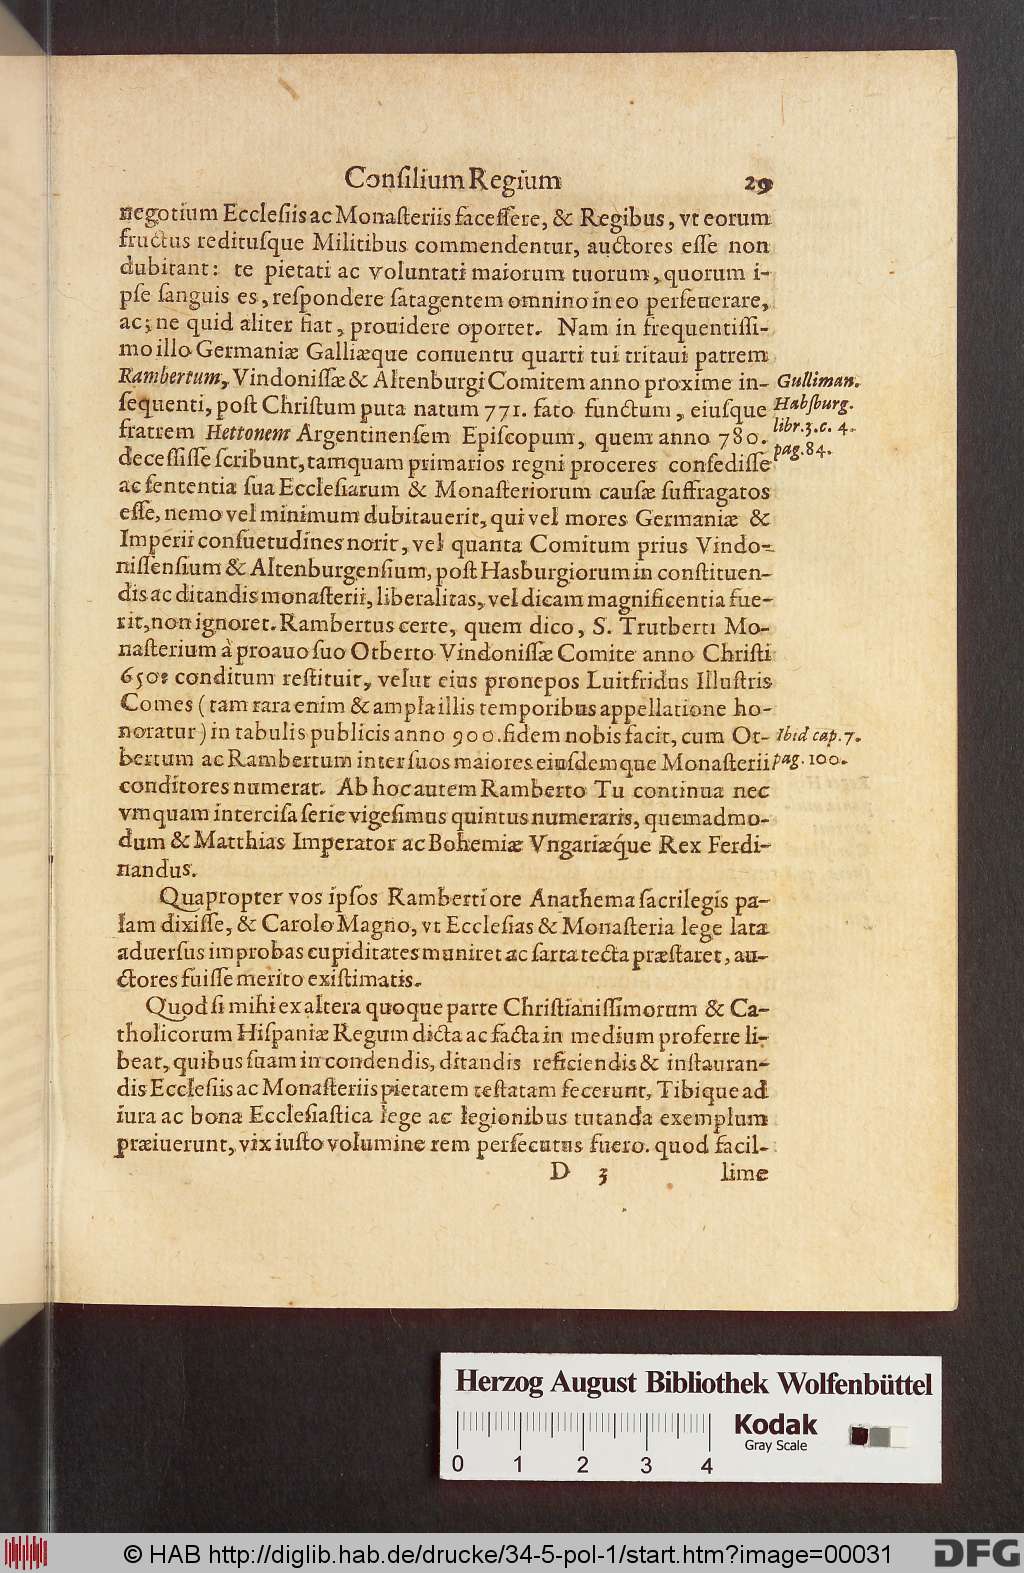 Conſilium Regium 29
negotium Eccleſiis ac Monaſteriis faceſſere, & Regibus, vt eorum
fructus redituſque Militibus commendentur, auctores eſſe non
dubitant: te pietati ac voluntati maiorum tuorum, quorum i-
pſe ſanguis es, reſpondere ſatagentem omnino in eo perſeuerare,
ac; ne quid aliter fiat, prouidere oportet. Nam in frequentiſſi-
mo illo Germaniæ Galliæque conuentu quarti tui tritaui patrem
Rambertum, Vindoniſſæ & Altenburgi Comitem anno proxime in-
ſequenti, poſt Chriſtum puta natum 771. fato functum, eiuſque
fratrem Hettonem Argentinenſem Epiſcopum, quem anno 780.
deceſſiſſe ſcribunt, tamquam primarios regni proceres conſediſſe
ac ſententia ſua Eccleſiarum & Monaſteriorum cauſæ ſuffragatos
eſſe, nemo vel minimum dubitauerit, qui vel mores Germaniæ &
Imperii conſuetudines norit, vel quanta Comitum prius Vindo-
niſſenſium & Altenburgenſium, poſt Hasburgiorum in conſtituen-
dis ac ditandis monaſterii, liberalitas, vel dicam magnificentia fue-
rit, non ignoret. Rambertus certe, quem dico, S. Trutberti Mo-
naſterium à proauo ſuo Otberto Vindoniſſæ Comite anno Chriſti
650. conditum reſtituit, velut eius pronepos Luitfridus Illuſtris
Comes (tam rara enim & ampla illis temporibus appellatione ho-
noratur) in tabulis publicis anno 900. fidem nobis facit, cum Ot-
bertum ac Rambertum inter ſuos maiores eiuſdemque Monaſterii
conditores numerat. Ab hoc autem Ramberto Tu continua nec
vmquam interciſa ſerie vigeſimus quintus numeraris, quemadmo-
dum & Matthias Imperator ac Bohemiæ Vngariæq́ue Rex Ferdi-
nandus.
Quapropter vos ipſos Ramberti ore Anathema ſacrilegis pa-
lam dixiſſe, & Carolo Magno, vt Eccleſias & Monaſteria lege lata
aduerſus improbas cupiditates muniret ac ſarta tecta præſtaret, au-
ctores fuiſſe merito exiſtimatis.
Quod ſi mihi ex altera quoque parte Chriſtianiſſimorum & Ca-
tholicorum Hiſpaniæ Regum dicta ac facta in medium proferre li-
beat, quibus ſuam in condendis, ditandis reficiendis & inſtauran-
dis Eccleſiis ac Monaſteriis pietatem teſtatam fecerunt, Tibique ad
iura ac bona Eccleſiaſtica lege ac legionibus tutanda exemplum
præiuerunt, vix iuſto volumine rem perſecutus fuero. quod facil-
D 3 lime
Gulliman.
Habſburg.
libr. 3. c. 4.
pag. 84.
Ibid cap. 7.
pag. 100.
Herzog August Bibliothek Wolfenbüttel
Kodak
Gray Scale
0 1 2 3 4
© HAB http://diglib.hab.de/drucke/34-5-pol-1/start.htm?image=00031
DFG